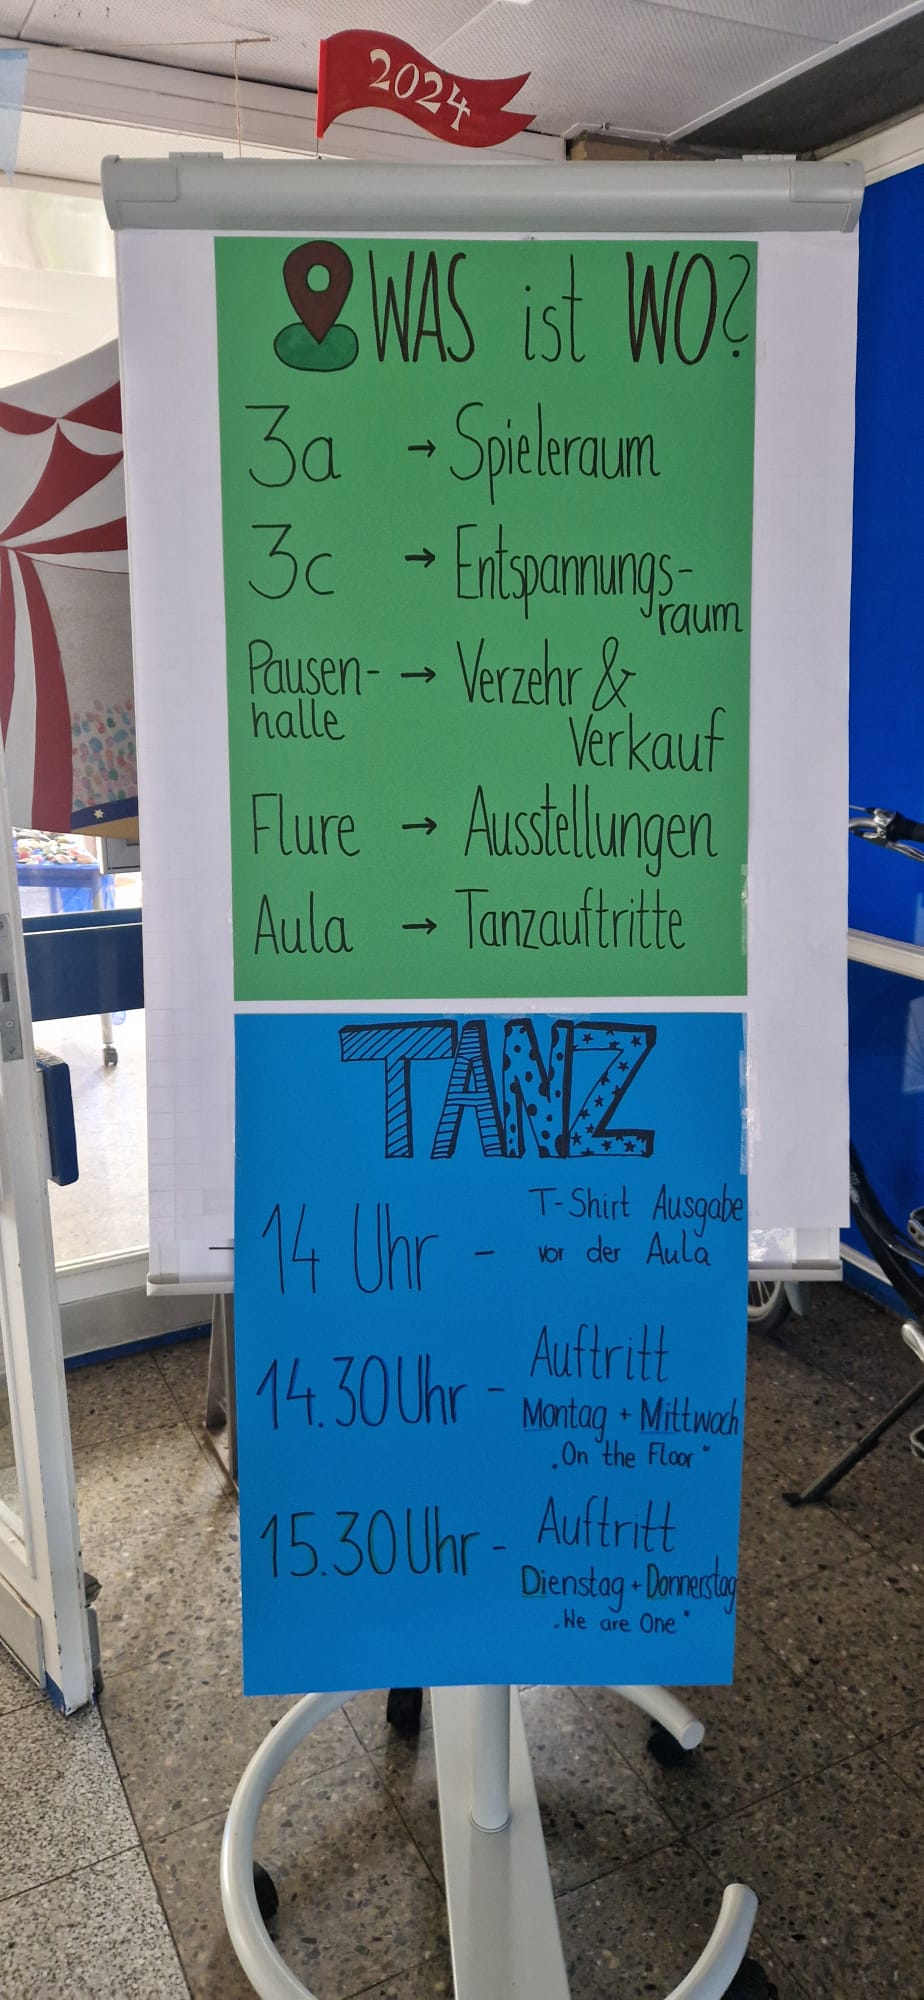 2024
WAS ist WO?
3a → Spieleraum
3c → Entspannungs-
raum
Pausen- → Verzehr &
halle Verkauf
Flure → Ausstellungen
Aula → Tanzauftritte
TANZ
14 Uhr - T-Shirt Ausgabe
vor der Aula
14.30 Uhr - Auftritt
Montag + Mittwoch
„On the Floor"
15.30 Uhr - Auftritt
Dienstag + Donnerstag
„We are One"